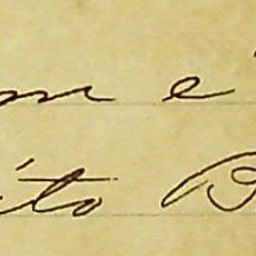 m e
ito B